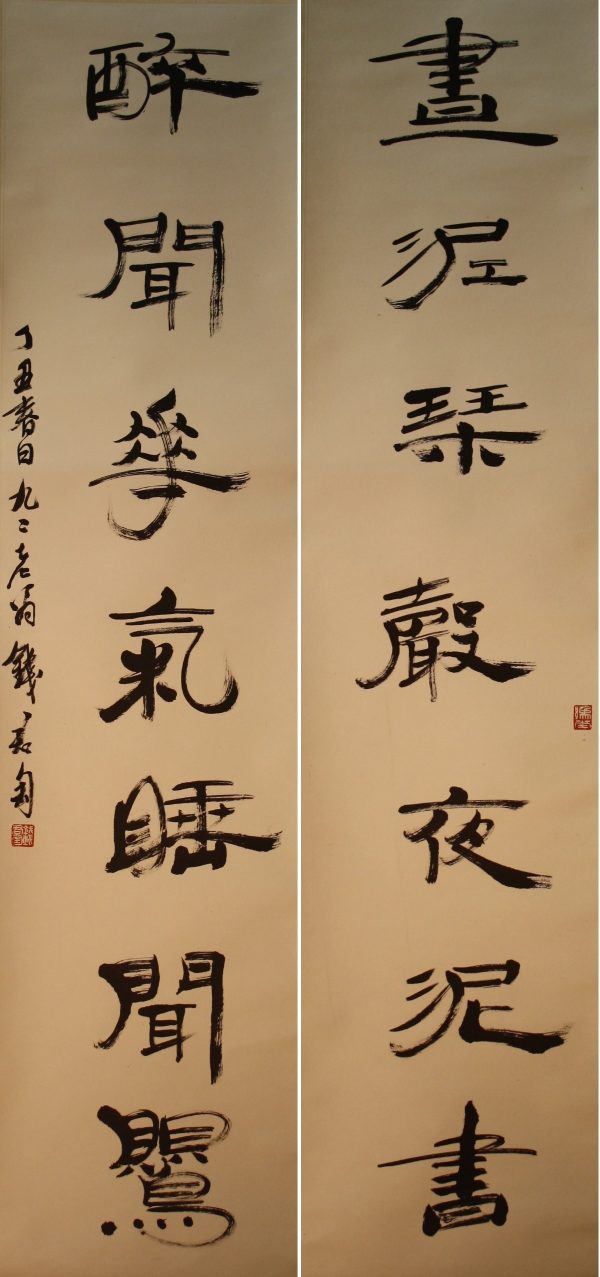 晝泥琴聲夜泥書
醉聞華氣睡聞鶯
丁丑春日九二老翁錢君匋